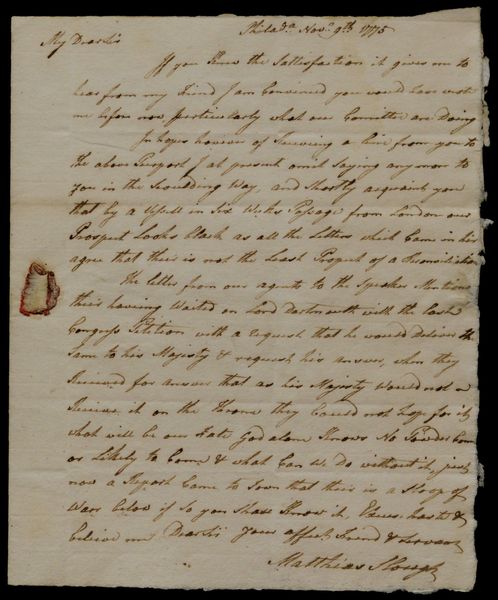 Philad.a Nov.r 9th. 1775
My Dear Sir
If you knew the Satisfaction it gives me to
hear from my Friend I am Convinced you would have wrote
me before now, particularly what our Committee are doing
In hopes however of Receiving a line from you to
the above Purport I at present omit Saying any more to
you in the Scoulding Way, and Shortly acquaint you
that by a Vessell in Six Weeks Passage from London our
Prospect Looks black as all the Letters which Came in her
agree that there is not the Least Prospect of a Reconciliation
the letter from our agents to the Speaker Mentions
their having Waited on Lord Dartmouth with the last
Congress Petition with a request that he would deliver the
Same to his Majesty & request his answer, when they
Received for answer that as his Majesty Would not
Receive it on the Throne they Could not hope for it,
what will be our Fate God alone Knows No Powder Come
or Likely to Come & what Can We do without it, just
now a Report Came to Town that there is a Sloop of
Warr below if so you Shall Know it, Excuse haste &
believe me Dear Sir your affect. Friend & Servant
Matthias Slough